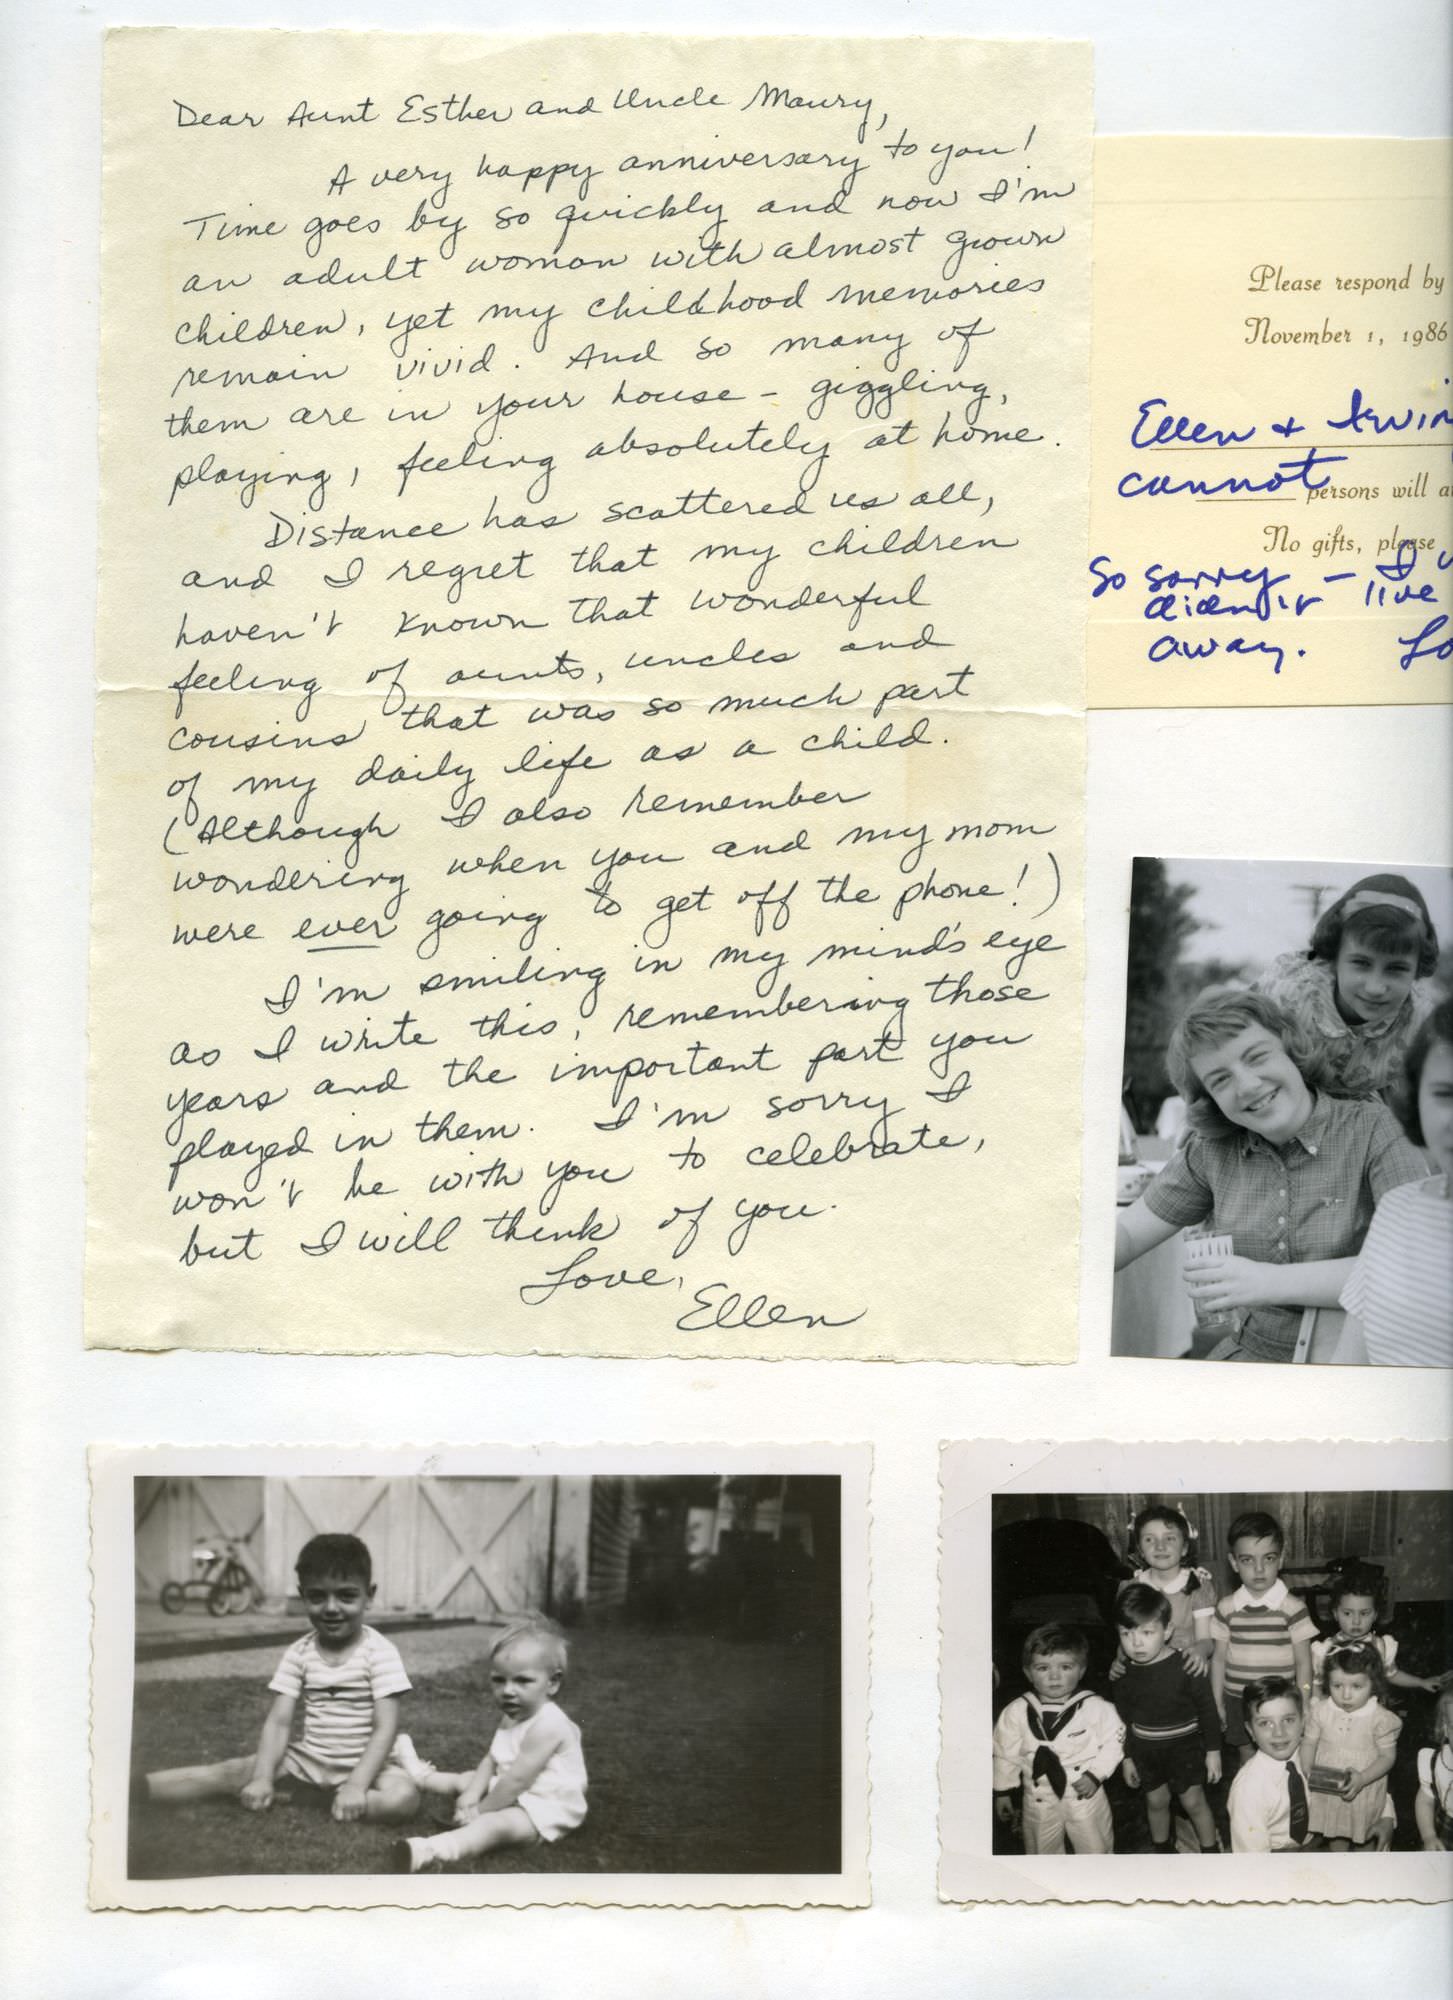 Dear Aunt Esther and Uncle Maury,
A very happy anniversary to you!
Time goes by so quickly and now I'm
an adult woman with almost grown
children, yet my childhood memories
remain vivid. And so many of
them are in your house - giggling,
playing, feeling absolutely at home.
Distance has scattered us all,
and I regret that my children
haven't known that wonderful
feeling of aunts, uncles and
cousins that was so much part
of my daily life as a child.
(Although I also remember
wondering when you and my mom
were ever going to get off the phone!)
I'm smiling in my mind's eye
as I write this, remembering those
years and the important part you
played in them. I'm sorry I
won't be with you to celebrate,
but I will think of you.
Love,
Ellen
Please respond by
November 1, 1986
Ellen + Irwin
cannot persons will
No gifts, please
So sorry - I
didn't live
away.